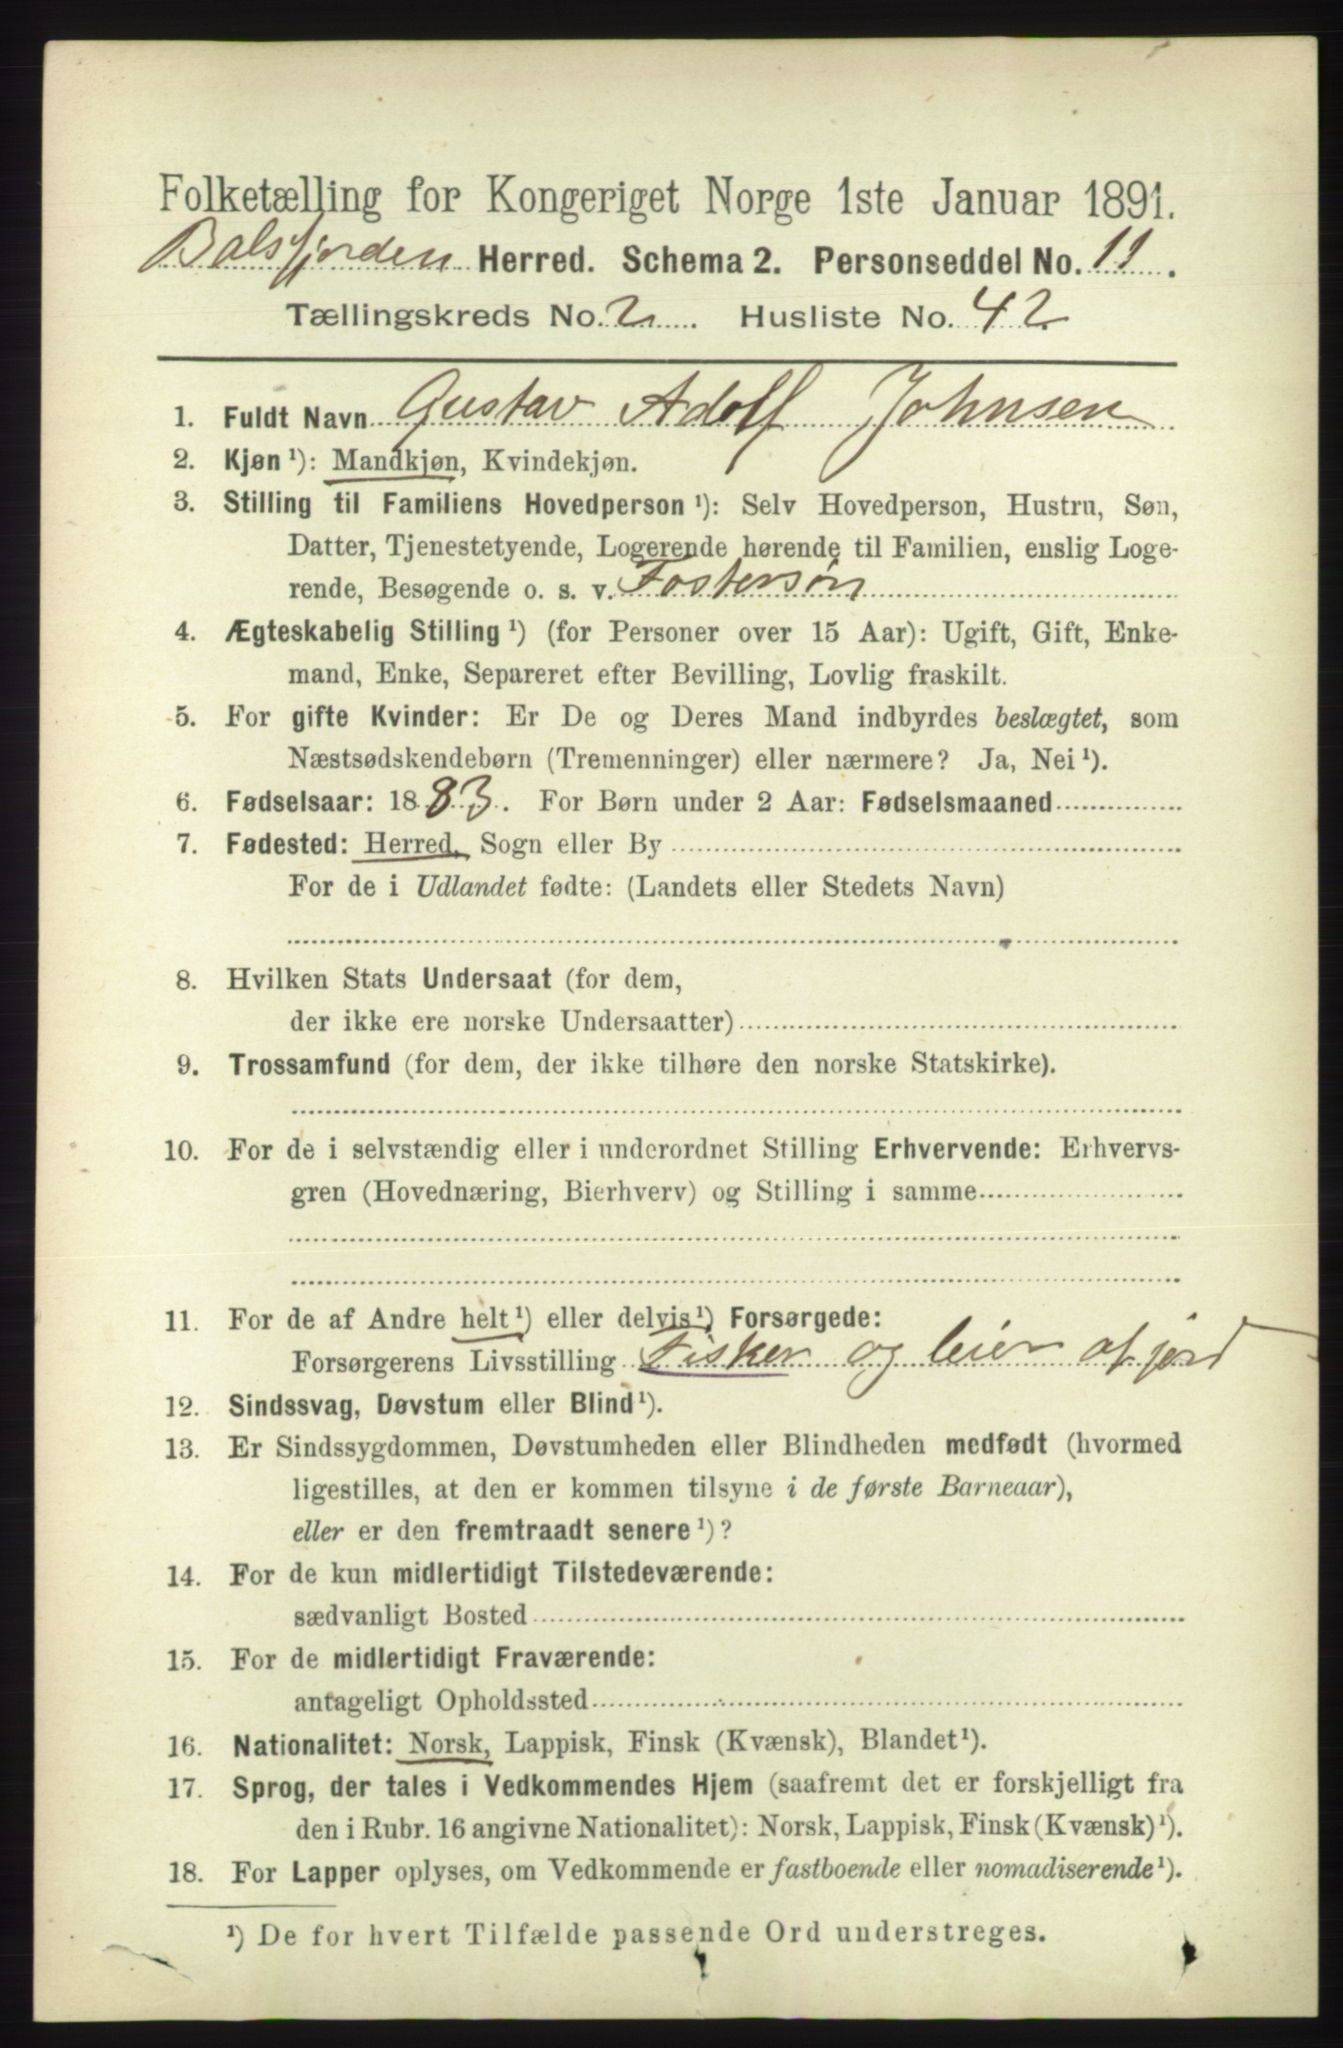 Folketælling for Kongeriget Norge 1ste Januar 1891.
Balsfjorden Herred. Schema 2. Personseddel No. 11.
Tællingskreds No. 2. Husliste No. 42
1. Fuldt Navn Gustav Adolf Johnsen
2. Kjøn ¹): Mandkjøn, Kvindekjøn.
3. Stilling til Familiens Hovedperson ¹): Selv Hovedperson, Hustru, Søn,
Datter, Tjenestetyende, Logerende hørende til Familien, enslig Loge-
rende, Besøgende o. s. v. Fostersøn
4. Ægteskabelig Stilling ¹) (for Personer over 15 Aar): Ugift, Gift, Enke-
mand, Enke, Separeret efter Bevilling, Lovlig fraskilt.
5. For gifte Kvinder: Er De og Deres Mand indbyrdes beslægtet, som
Næstsødskendebørn (Tremenninger) eller nærmere? Ja, Nei ¹).
6. Fødselsaar: 1883. For Børn under 2 Aar: Fødselsmaaned
7. Fødested: Herred, Sogn eller By
For de i Udlandet fødte: (Landets eller Stedets Navn)
8. Hvilken Stats Undersaat (for dem,
der ikke ere norske Undersaatter)
9. Trossamfund (for dem, der ikke tilhøre den norske Statskirke).
10. For de i selvstændig eller i underordnet Stilling Erhvervende: Erhvervs-
gren (Hovednæring, Bierhverv) og Stilling i samme
11. For de af Andre helt ¹) eller delvis ¹) Forsørgede:
Forsørgerens Livsstilling Fisker og leier af jord
12. Sindssvag, Døvstum eller Blind ¹).
13. Er Sindssygdommen, Døvstumheden eller Blindheden medfødt (hvormed
ligestilles, at den er kommen tilsyne i de første Barneaar),
eller er den fremtraadt senere ¹)?
14. For de kun midlertidigt Tilstedeværende:
sædvanligt Bosted
15. For de midlertidigt Fraværende:
antageligt Opholdssted
16. Nationalitet: Norsk, Lappisk, Finsk (Kvænsk), Blandet ¹).
17. Sprog, der tales i Vedkommendes Hjem (saafremt det er forskjelligt fra
den i Rubr. 16 angivne Nationalitet): Norsk, Lappisk, Finsk (Kvænsk) ¹).
18. For Lapper oplyses, om Vedkommende er fastboende eller nomadiserende ¹).
¹) De for hvert Tilfælde passende Ord understreges.